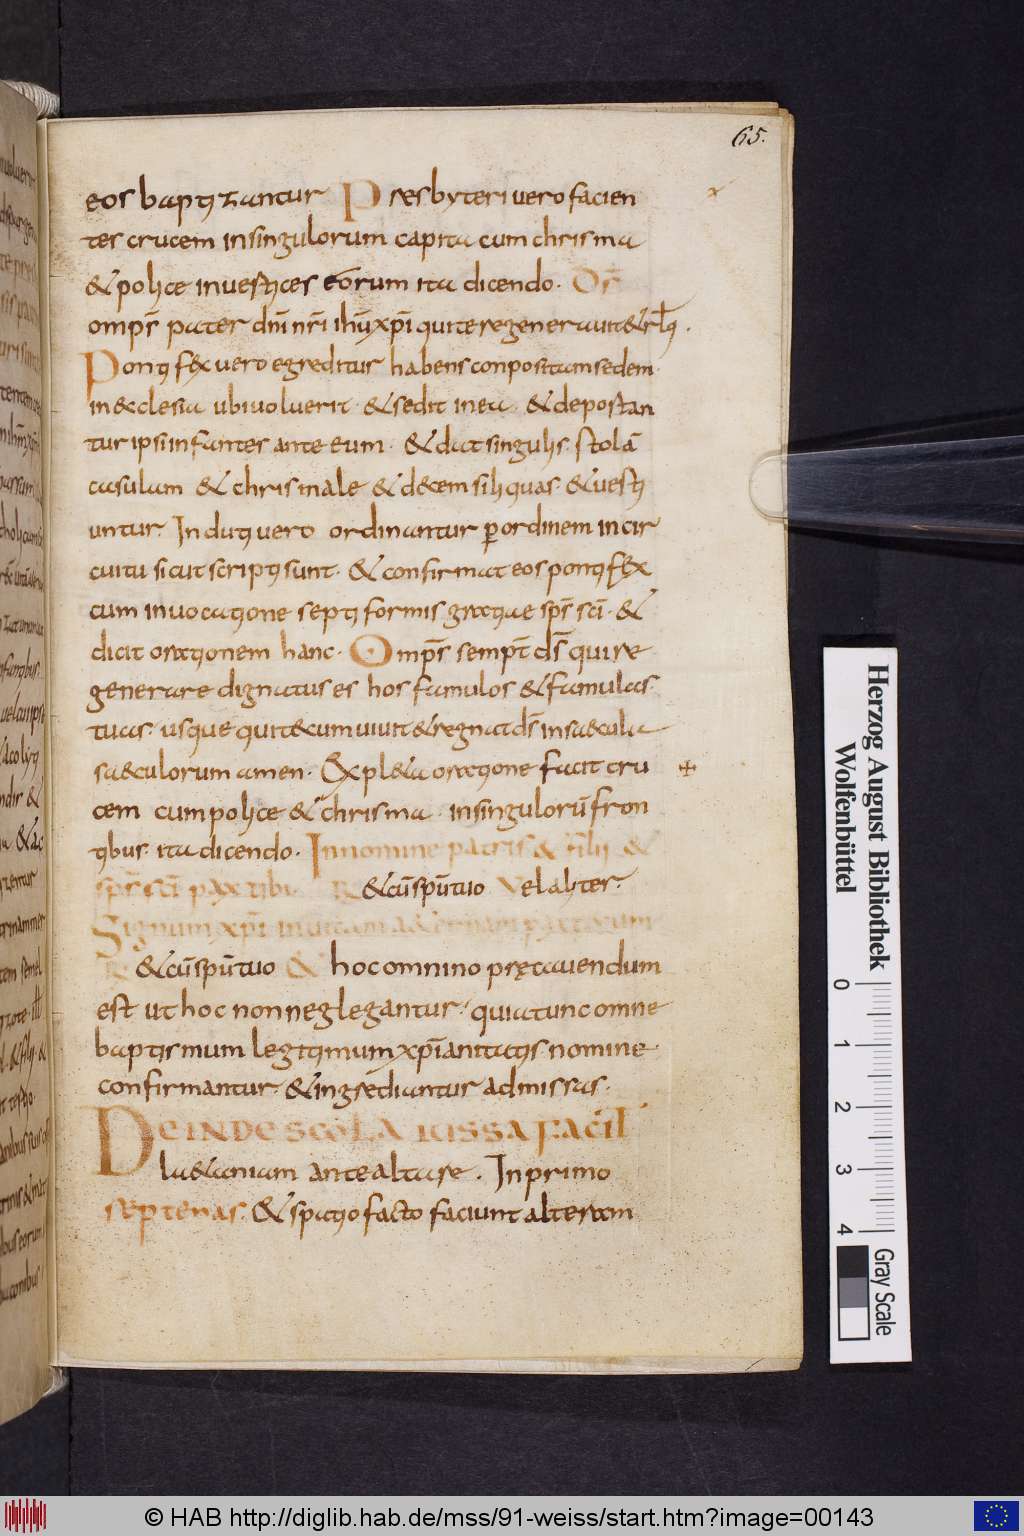 65.
eos baptizantur Presbyteri vero facien
tes crucem in singulorum capita cum chrisma
& pollice in vestices eorum ita dicendo. Os̄
omp̄s pater dn̄i nr̄i ihū xp̄i qui te regenerauit & rlq̄.
Pontifex vero egreditur habens conpositam sedem
in ecclesia ubi voluerit & sedit in ea & depostan
tur ipsi infantes ante eum. & dat singulis stolā
casulam & chrismale & decem siliquas. & vesti
untur. Induti vero ordinantur p ordinem in cir
cuitu sicut scripti sunt. & confirmat eos pontifex
cum invocatione septiformis gratiae sp̄s sc̄i. &
dicit orationem hanc. Omp̄s semp̄t ds̄ qui re
generare dignatus es hos famulos & famulas
tuas. usque qui tecum uiuit & regnat ds̄ in saecula
saeculorum amen. Expleta oratione facit cru
cem cum pollice & chrisma in singulorū fron
tibus. ita dicendo. In nomine patris & filii &
sp̄s sc̄i pax tibi. R & cū sp̄u tuo Vel aliter.
Signum xp̄i in uitam aeternam pax tecum
R & cū sp̄u tuo & hoc omnino pręcauendum
est ut hoc non neglegantur. quia tunc omne
baptismum legitimum xp̄ianitatis nomine
confirmantur. & ingrediantur ad missas.
Deinde scola iussa facit
laetaniam ante altare. In primo
septenas. & spatio facto faciunt alteram
Herzog August Bibliothek
Wolfenbüttel
0 1 2 3 4
Gray Scale
© HAB http://diglib.hab.de/mss/91-weiss/start.htm?image=00143